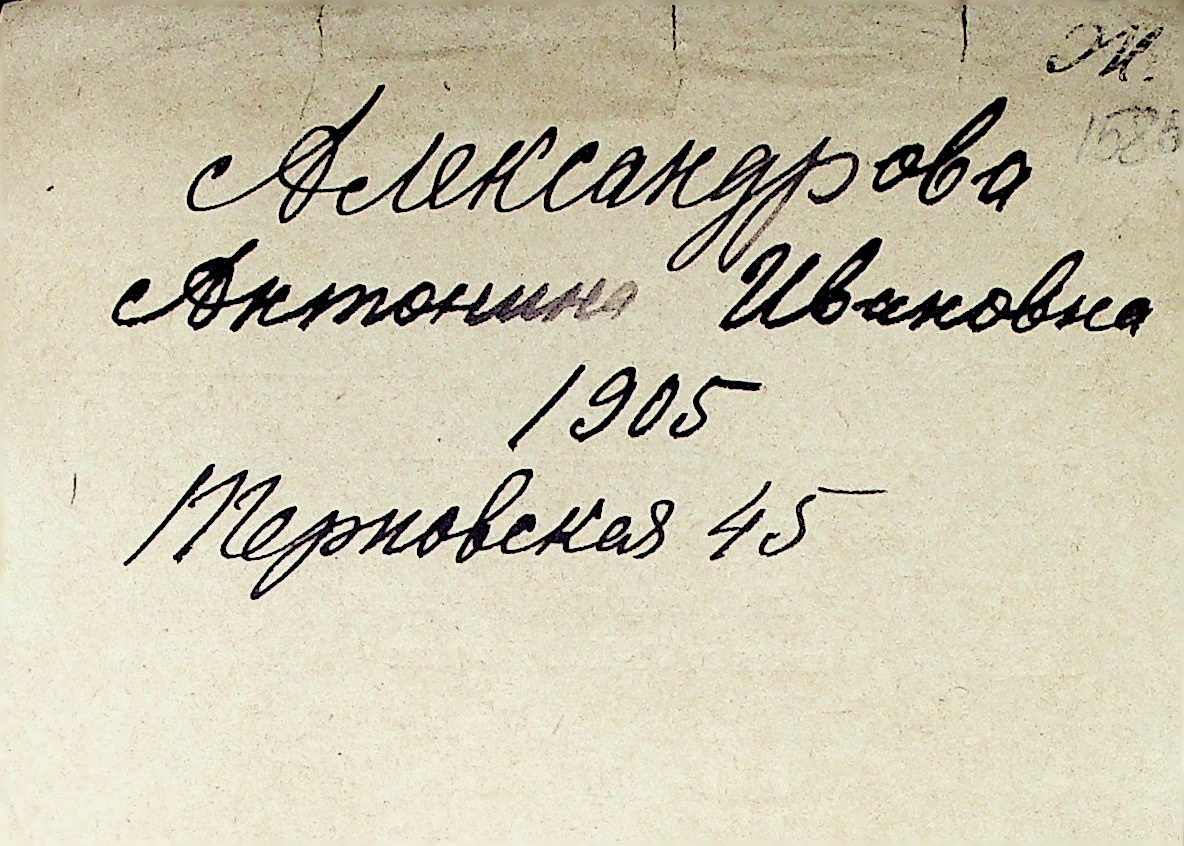 Александрова
Антонина Ивановна
1905
Терновская 45